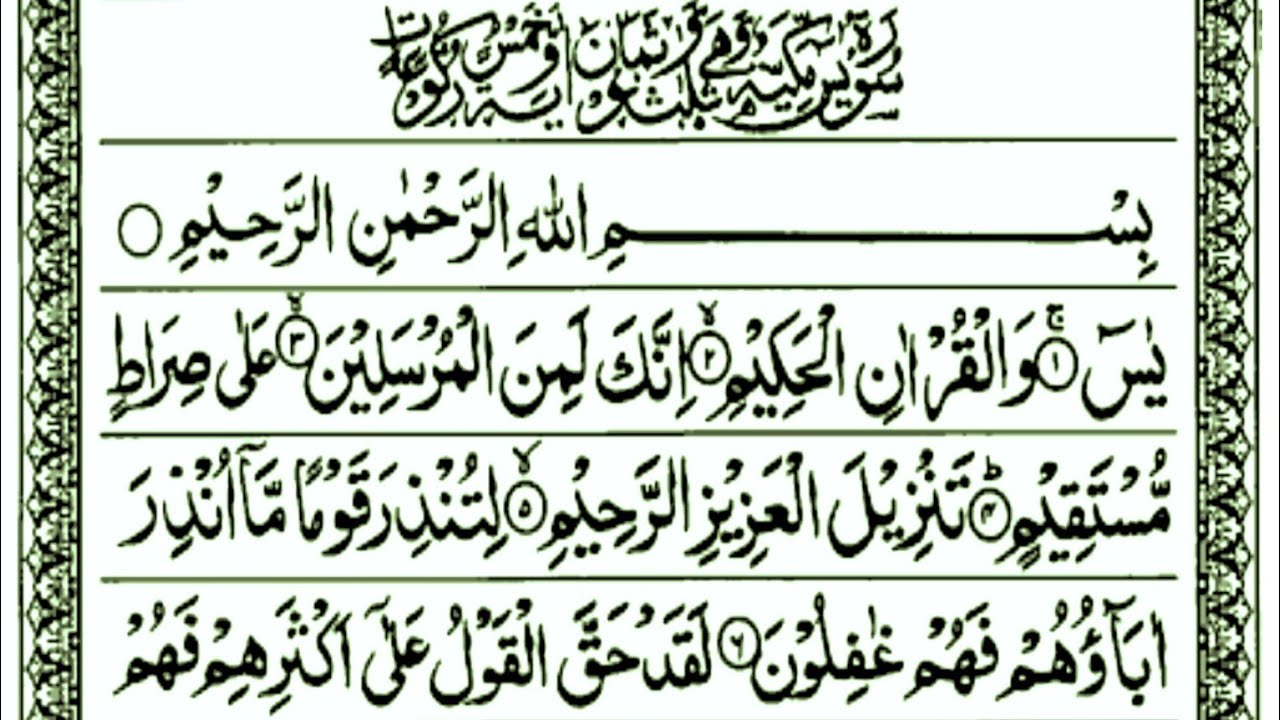 سورة يس مكية وهي ثلث و ثمانون اية و خمس ركوعات
بِسْمِ اللهِ الرَّحْمٰنِ الرَّحِيْمِ
يٰسٓ ۚ﴿۱﴾ وَالْقُرْاٰنِ الْحَكِيْمِ ۙ﴿۲﴾ اِنَّكَ لَمِنَ الْمُرْسَلِيْنَ ۙ﴿۳﴾ عَلٰى صِرَاطٍ
مُّسْتَقِيْمٍ ؕ﴿۴﴾ تَنْزِيْلَ الْعَزِيْزِ الرَّحِيْمِ ۙ﴿۵﴾ لِتُنْذِرَ قَوْمًا مَّاۤ اُنْذِرَ
اٰبَآؤُهُمْ فَهُمْ غٰفِلُوْنَ ﴿۶﴾ لَقَدْ حَقَّ الْقَوْلُ عَلٰۤى اَكْثَرِهِمْ فَهُمْ